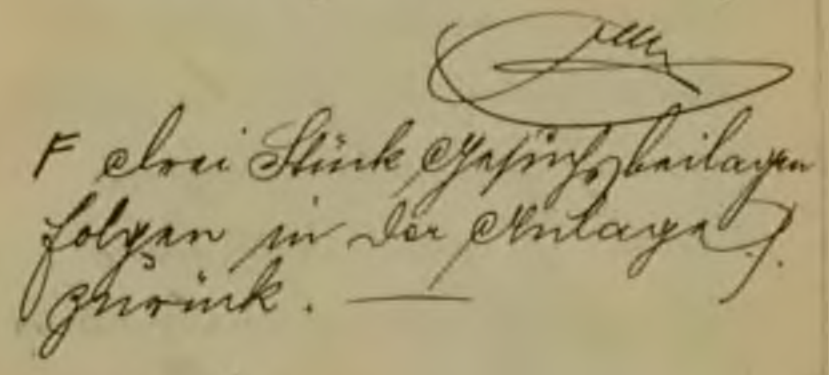 F drei Stück Gesuchsbeilagen
folgen in der Anlage
zurück. —